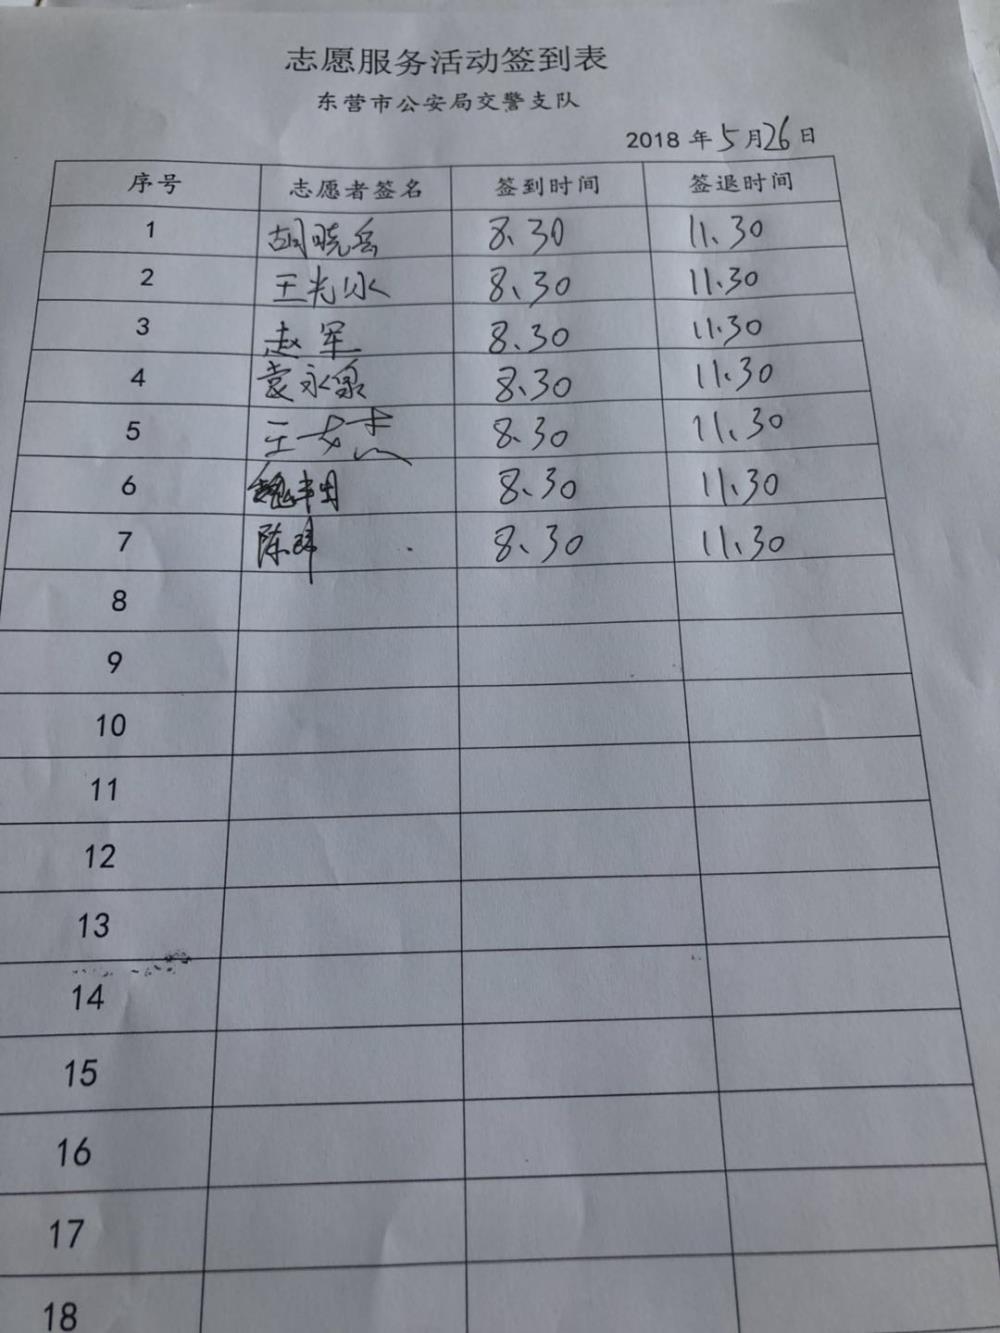 志愿服务活动签到表
东营市公安局交警支队
2018 年 5 月 26 日
序号 志愿者签名 签到时间 签退时间
1 胡晓岳 8.30 11.30
2 王光冰 8.30 11.30
3 赵军 8.30 11.30
4 袁永泉 8.30 11.30
5 王 8.30 11.30
6 8.30 11.30
7 陈 8.30 11.30
8
9
10
11
12
13
14
15
16
17
18